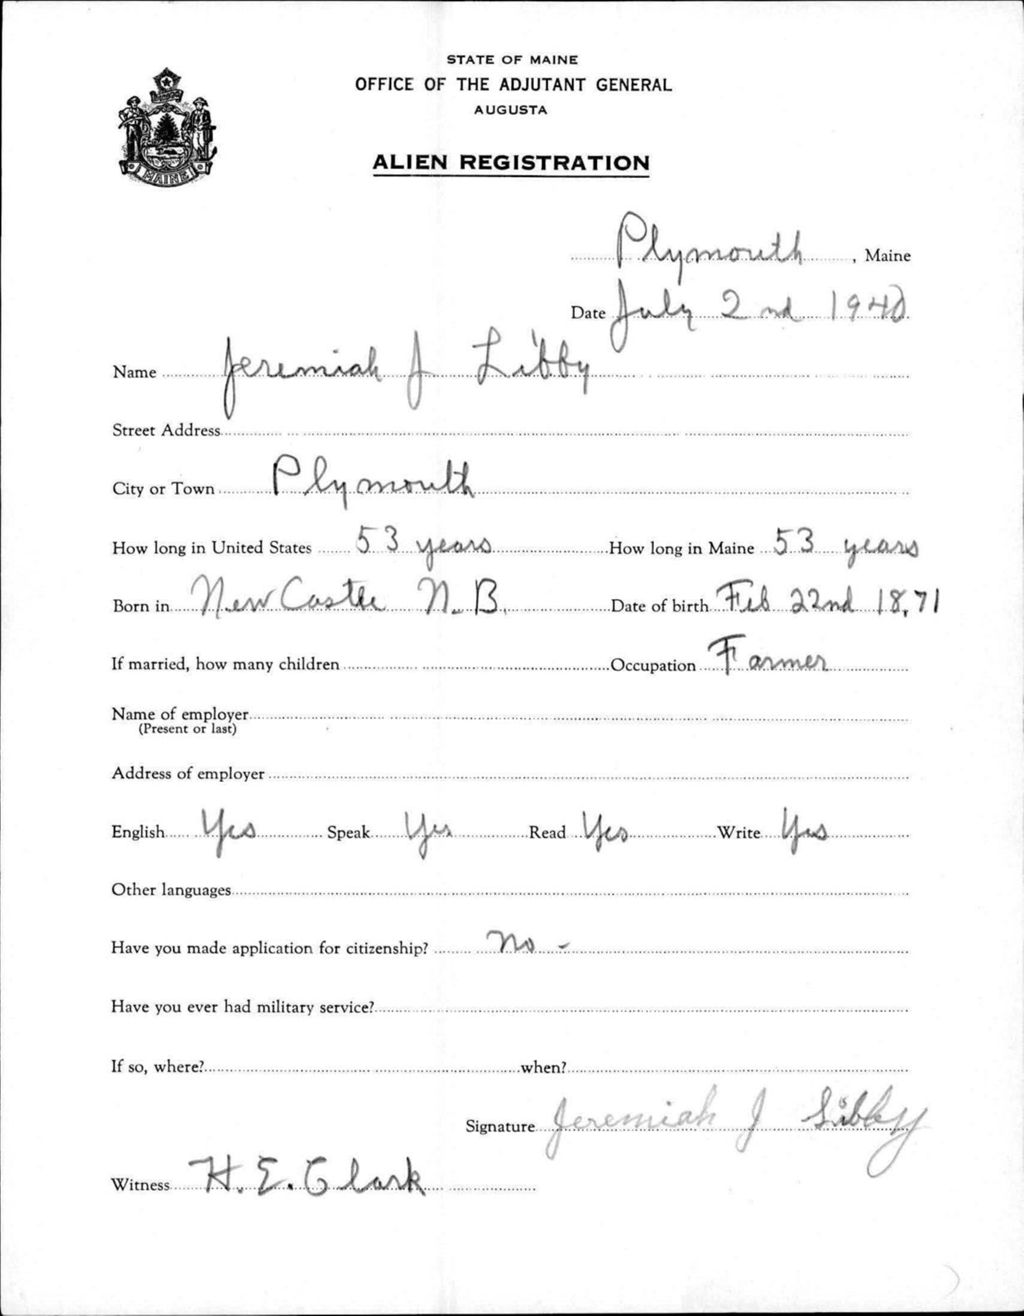 STATE OF MAINE
OFFICE OF THE ADJUTANT GENERAL
AUGUSTA
ALIEN REGISTRATION
MAINE
Plymouth, Maine
Date July 2nd 1940
Name Jeremiah J Libby
Street Address
City or Town Plymouth
How long in United States 53 years How long in Maine 53 years
Born in New Castle N.B. Date of birth Feb 22nd 18,71
If married, how many children Occupation Farmer
Name of employer
(Present or last)
Address of employer
English Yes Speak Yes Read Yes Write Yes
Other languages
Have you made application for citizenship? No -
Have you ever had military service?
If so, where? when?
Signature Jeremiah J Libby
Witness H. E. Clark